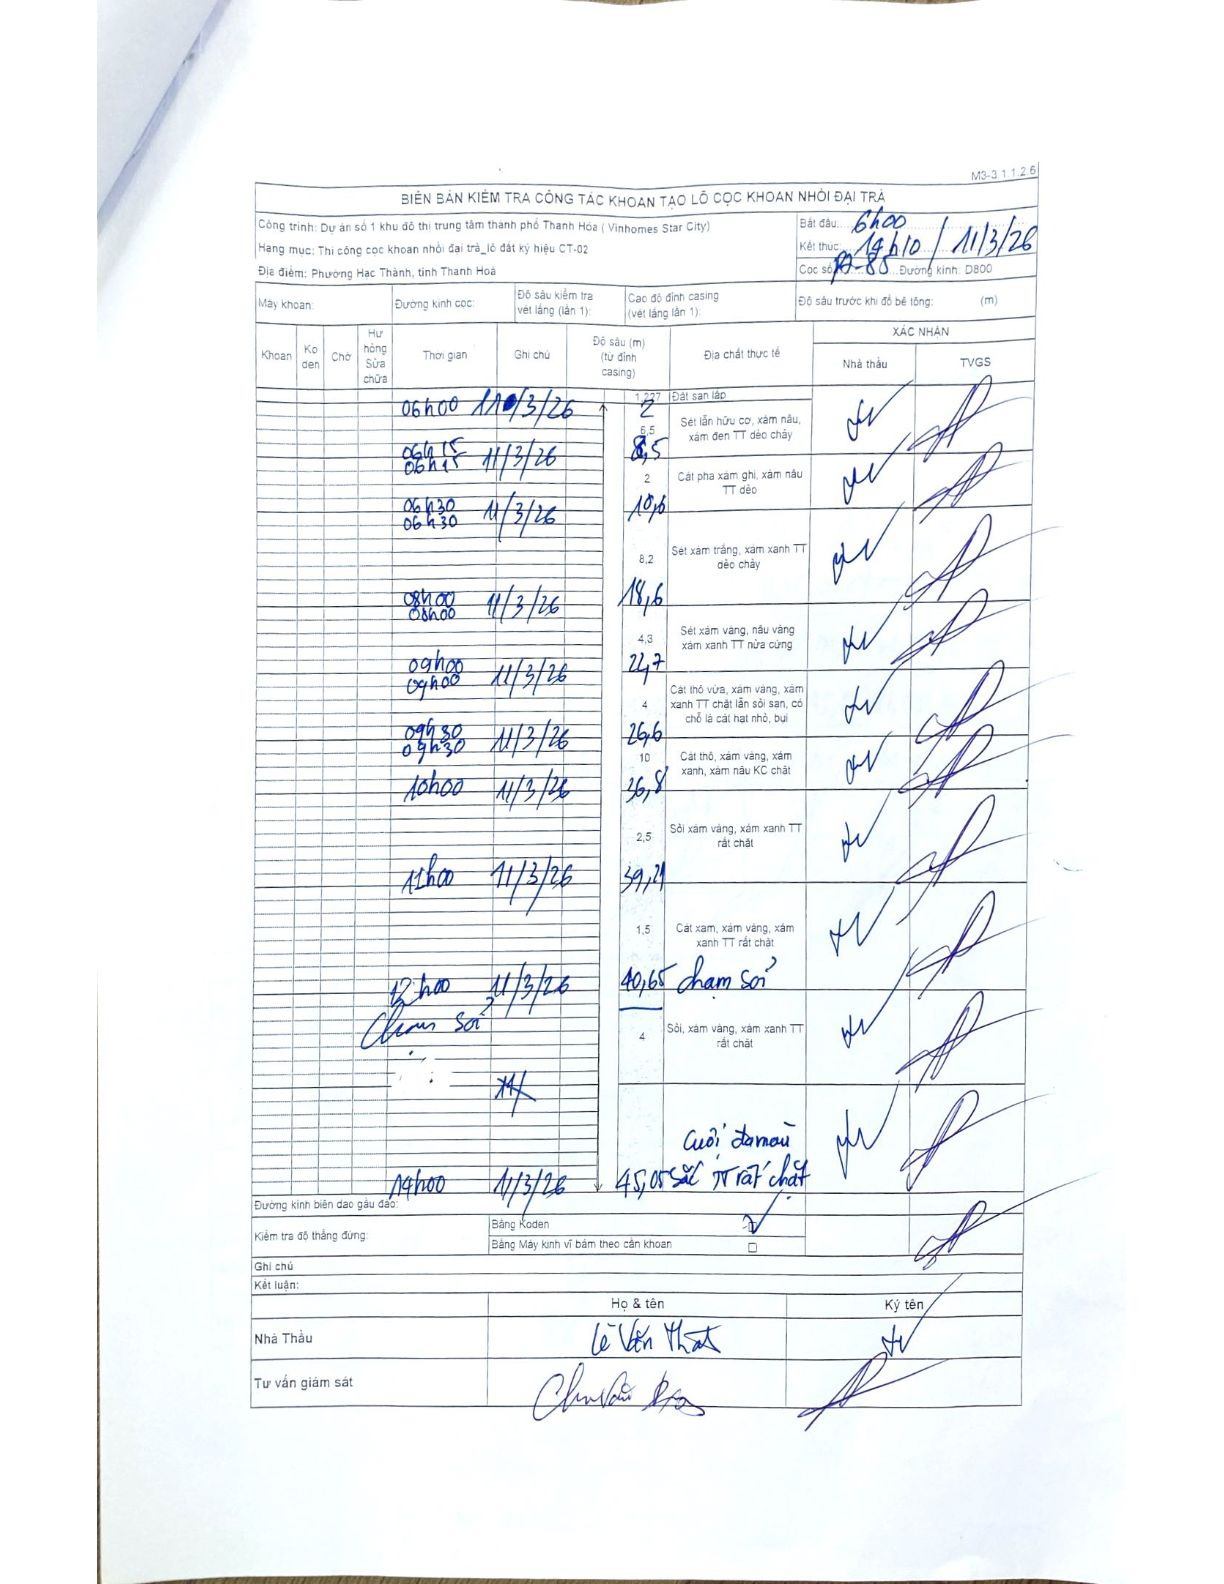 M3-3.1.1.2.6
BIÊN BẢN KIỂM TRA CÔNG TÁC KHOAN TẠO LỖ CỌC KHOAN NHỒI ĐẠI TRÀ
Công trình: Dự án số 1 khu đô thị trung tâm thành phố Thanh Hóa ( Vinhomes Star City)
Bắt đầu: 6h00
Hạng mục: Thi công cọc khoan nhồi đại trà_lô đất ký hiệu CT-02
Kết thúc: 14h10 / 11/3/26
Địa điểm: Phường Hạc Thành, tỉnh Thanh Hoá
Cọc số: -85 Đường kính: D800
Máy khoan:
Đường kính cọc:
Độ sâu kiểm tra vét lắng (lần 1):
Cao độ đỉnh casing (vét lắng lần 1):
Độ sâu trước khi đổ bê tông: (m)
Khoan
Ko den
Chờ
Hư hỏng Sửa chữa
Thời gian
Ghi chú
Độ sâu (m) (từ đỉnh casing)
Địa chất thực tế
XÁC NHẬN
Nhà thầu
TVGS
1,227 Đất san lấp
06h00 11/3/26 2
6,5 Sét lẫn hữu cơ, xám nâu,
xám đen TT dẻo chảy
06h15
06h15 11/3/26 8,5
2 Cát pha xám ghi, xám nâu
TT dẻo
06h30
06h30 11/3/26 10,6
8,2 Sét xám trắng, xám xanh TT
dẻo chảy
08h00
08h00 11/3/26 18,6
4,3 Sét xám vàng, nâu vàng
xám xanh TT nửa cứng
09h00
09h00 11/3/26 22,7
4 Cát thô vừa, xám vàng, xám
xanh TT chặt lẫn sỏi sạn, có
chỗ là cát hạt nhỏ, bụi
09h30
09h30 11/3/26 26,6
10 Cát thô, xám vàng, xám
xanh, xám nâu KC chặt
10h00 11/3/26 36,8
2,5 Sỏi xám vàng, xám xanh TT
rất chặt
11h00 11/3/26 39,21
1,5 Cát xam, xám vàng, xám
xanh TT rất chặt
12h00 11/3/26 40,65 chạm sỏi
Chạm sỏi
4 Sỏi, xám vàng, xám xanh TT
rất chặt
11/
Cuội đa màu
14h00 11/3/26 45,05 sắc TT rất chặt
Đường kính biên dao gầu đào:
Kiểm tra độ thẳng đứng:
Bằng Koden
Bằng Máy kinh vĩ bám theo cần khoan
Ghi chú
Kết luận:
Họ & tên
Ký tên
Nhà Thầu
Lê Văn Thật
Tư vấn giám sát